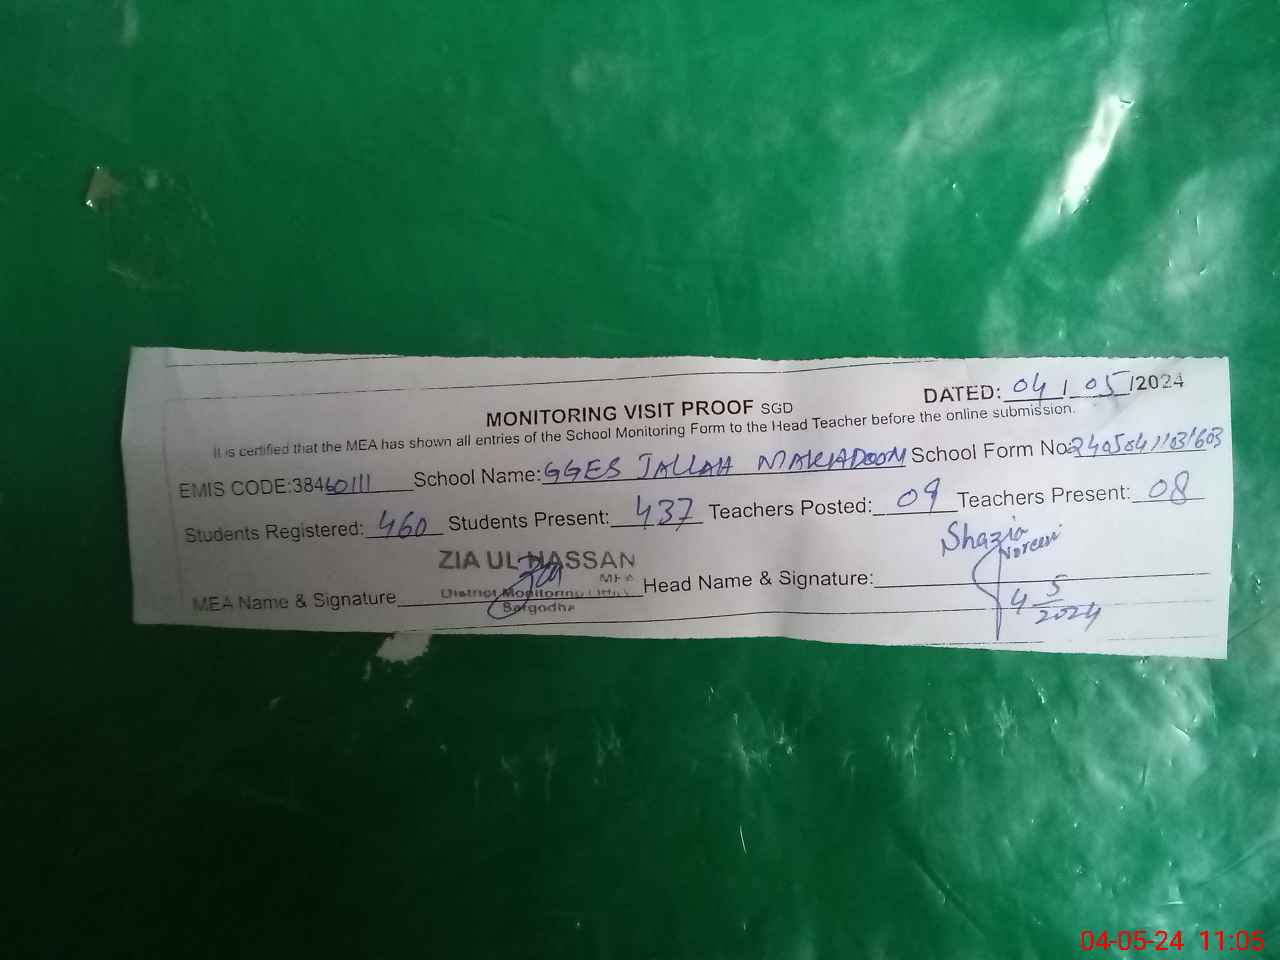 MONITORING VISIT PROOF SGD DATED: 04 / 05 /2024
It is certified that the MEA has shown all entries of the School Monitoring Form to the Head Teacher before the online submission.
EMIS CODE:38460111 School Name: GGES JALLAH MAKHDOOM School Form No:
Students Registered: 460 Students Present: 437 Teachers Posted: 09 Teachers Present: 08
ZIA UL HASSAN
MEA
District Monitoring
Sargodha
MEA Name & Signature
Shazia
Noreen
Head Name & Signature:
4 5
2024
04-05-24 11:05